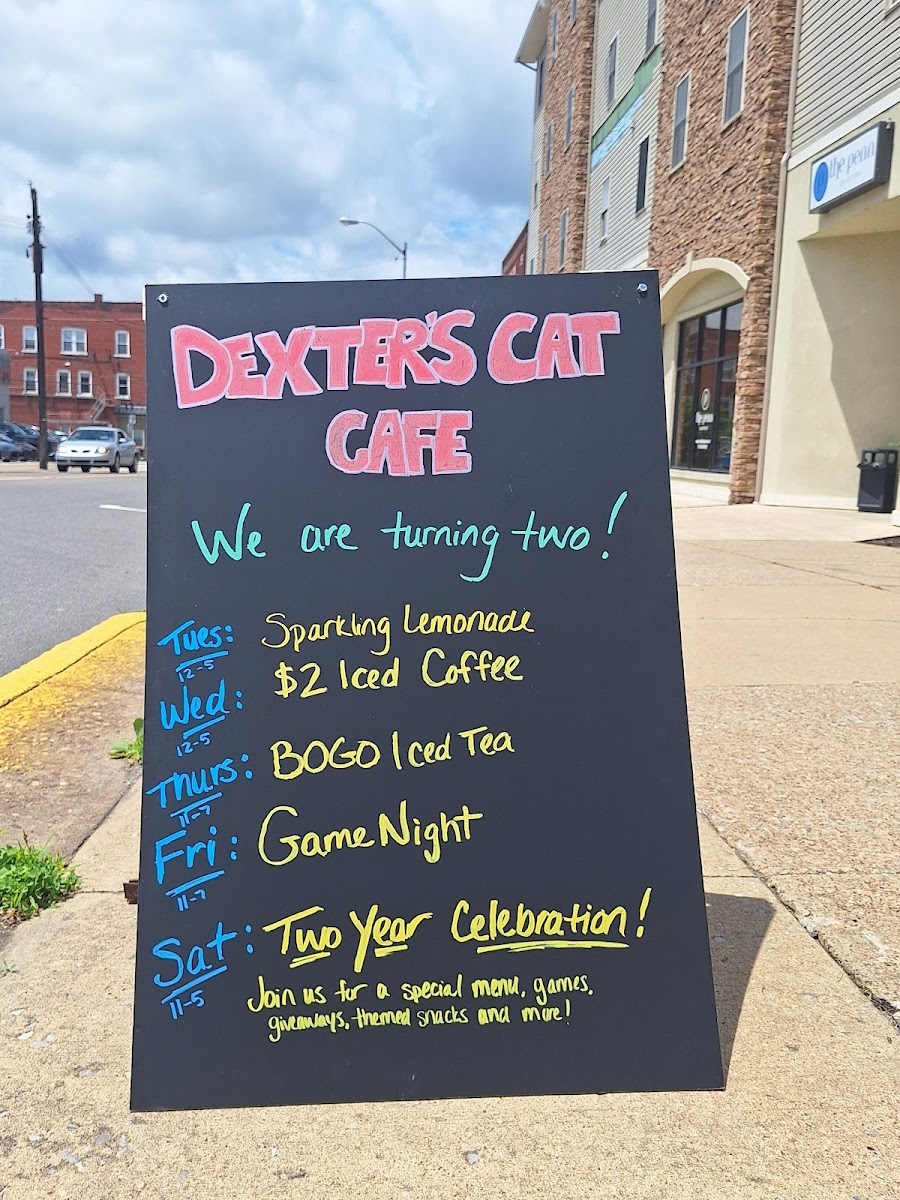 DEXTER'S CAT
CAFE
We are turning two!
Tues: Sparkling Lemonade
12-5
$2 Iced Coffee
Wed:
12-5
Thurs: BOGO Iced Tea
11-7
Fri: Game Night
11-7
Sat: Two Year Celebration!
11-5
Join us for a special menu, games,
giveaways, themed snacks and more!
the penn
the penn